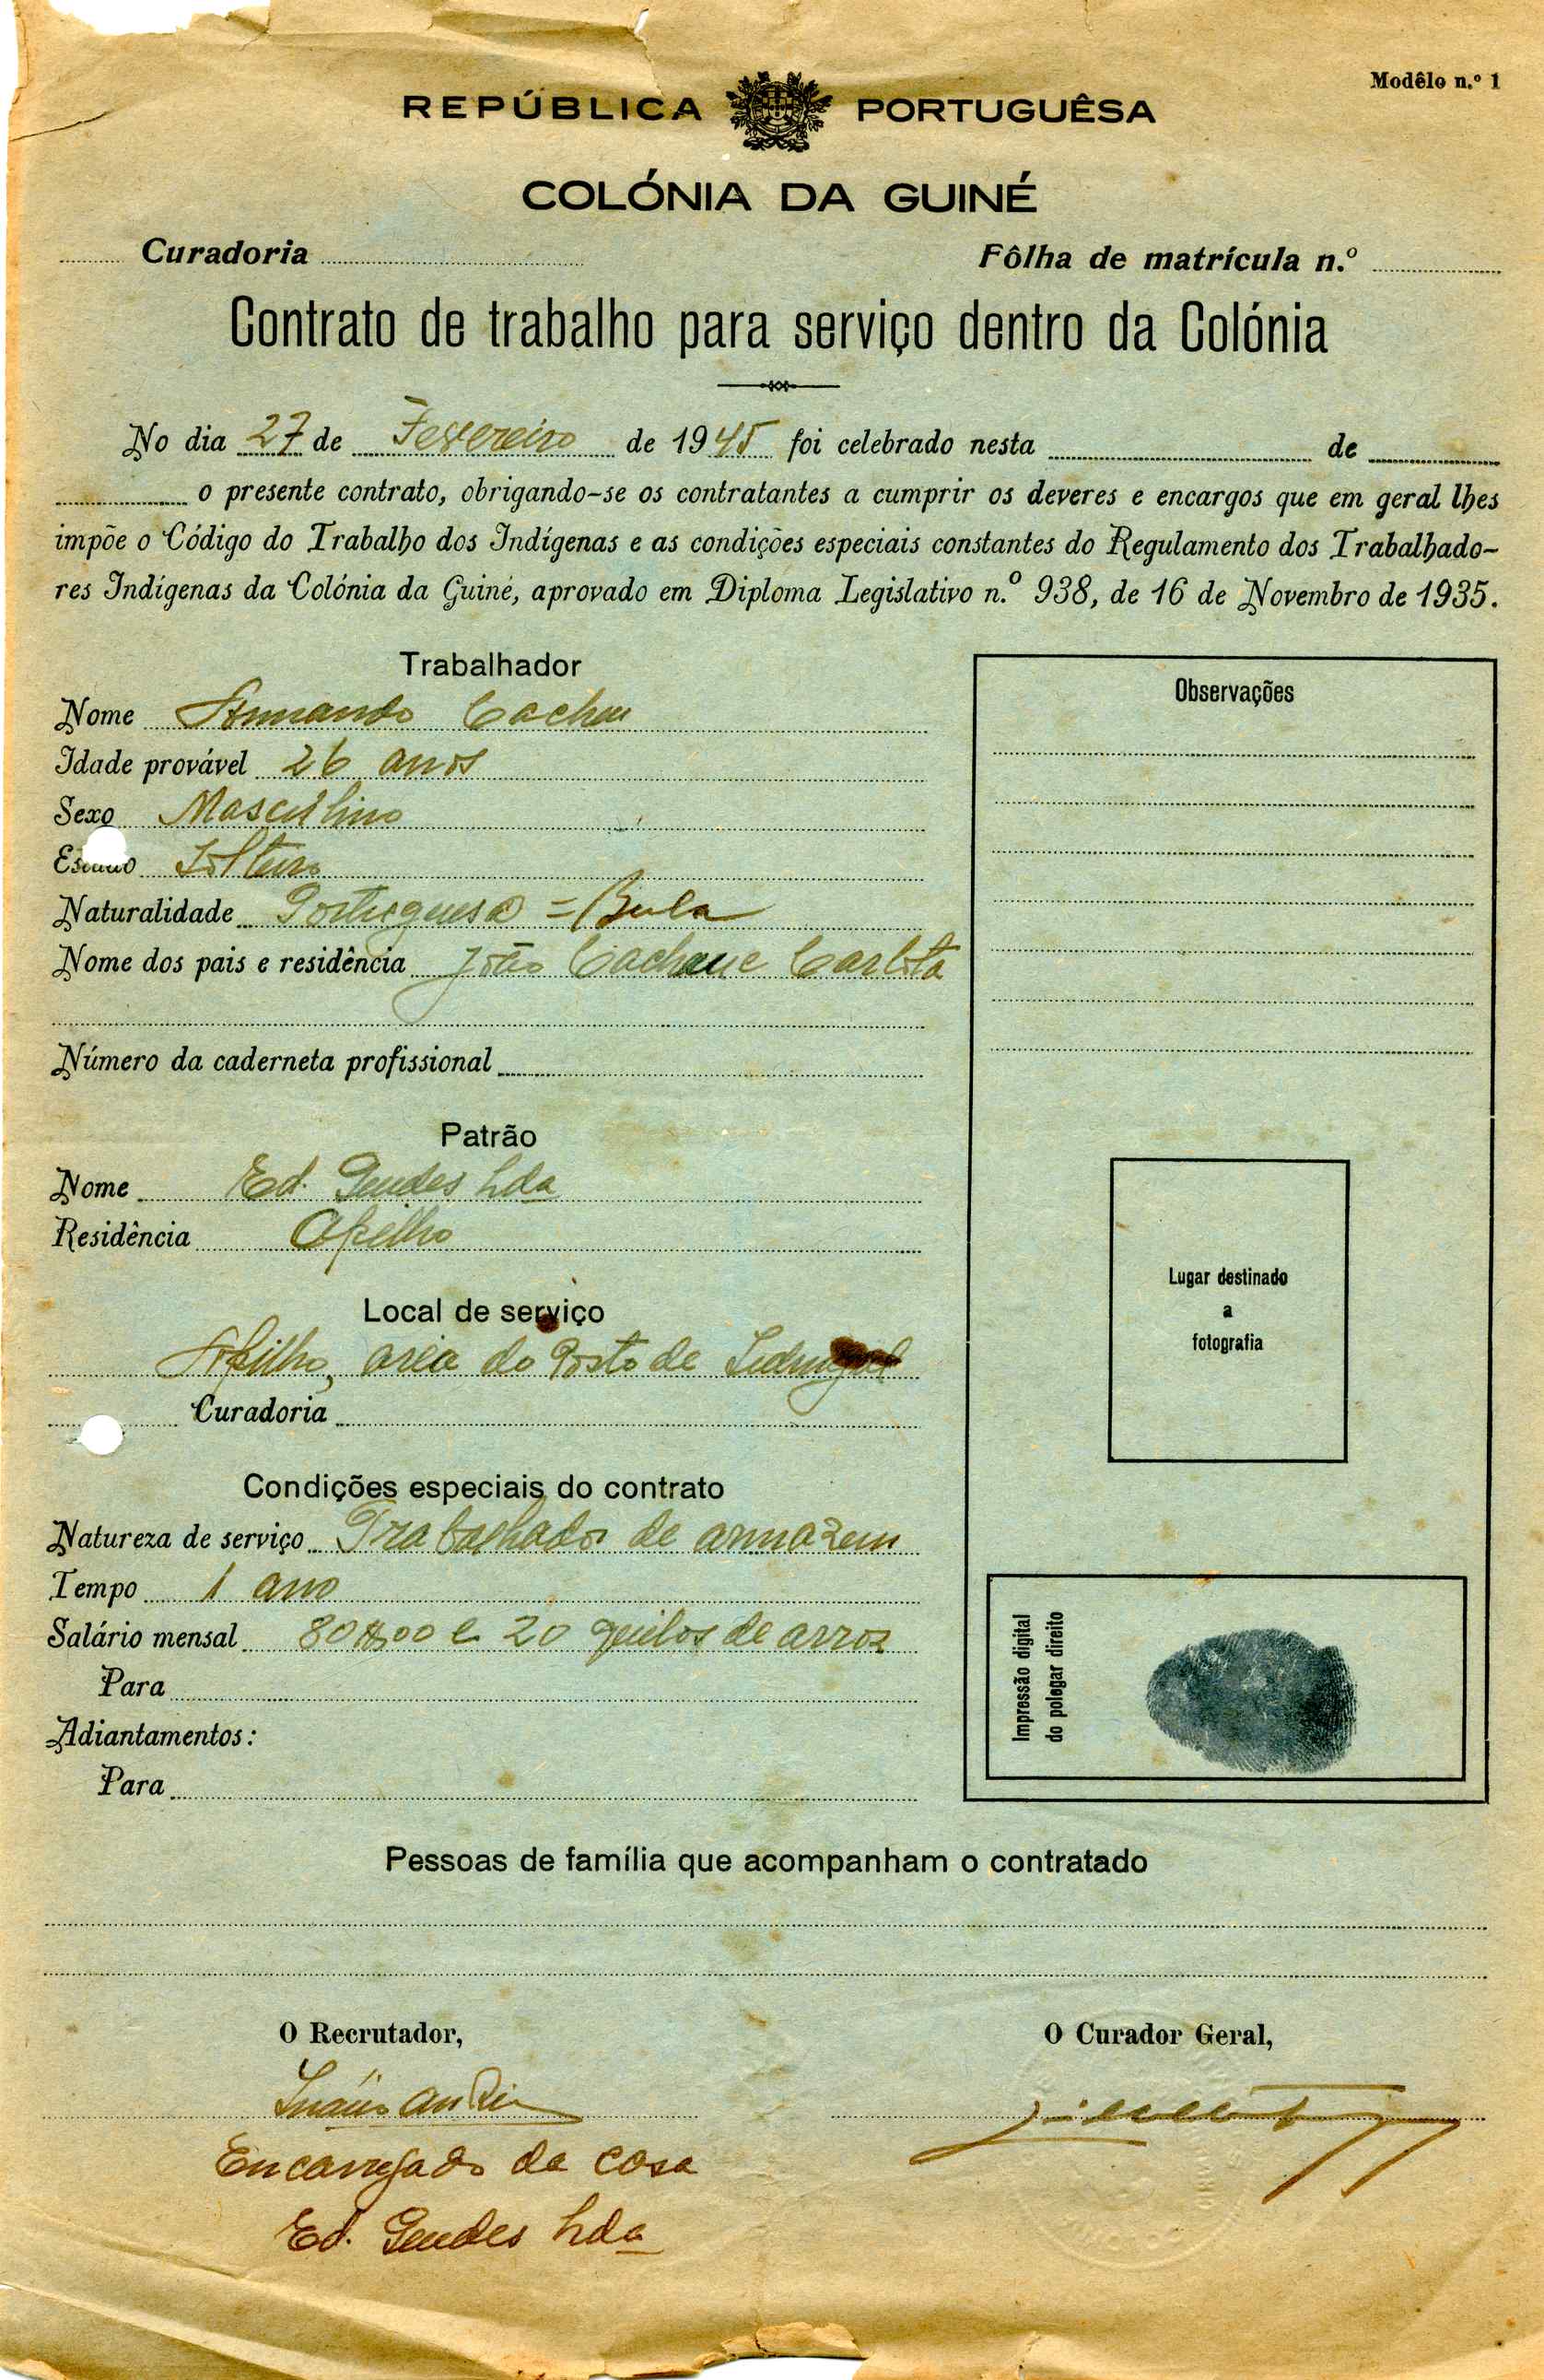 Modêlo n.º 1
REPÚBLICA PORTUGUÊSA
COLÓNIA DA GUINÉ
Curadoria
Fôlha de matrícula n.º
Contrato de trabalho para serviço dentro da Colónia
No dia 27 de Fevereiro de 1945 foi celebrado nesta de
o presente contrato, obrigando-se os contratantes a cumprir os deveres e encargos que em geral lhes
impõe o Código do Trabalho dos Indígenas e as condições especiais constantes do Regulamento dos Trabalhado-
res Indígenas da Colónia da Guiné, aprovado em Diploma Legislativo n.º 938, de 16 de Novembro de 1935.
Trabalhador
Nome Armando
Idade provável 26 anos
Sexo Masculino
Estado Solteiro
Naturalidade Portuguesa = Bula
Nome dos pais e residência João Carlota
Número da caderneta profissional
Patrão
Nome Ed. Lda
Residência
Local de serviço
area do Posto de
Curadoria
Condições especiais do contrato
Natureza de serviço Trabalhador de armazem
Tempo 1 ano
Salário mensal 80$00 e 20 quilos de arroz
Para
Adiantamentos:
Para
Observações
Lugar destinado
a
fotografia
Impressão digital
do polegar direito
Pessoas de família que acompanham o contratado
O Recrutador,
Encarregado da casa
Ed. Lda
O Curador Geral,